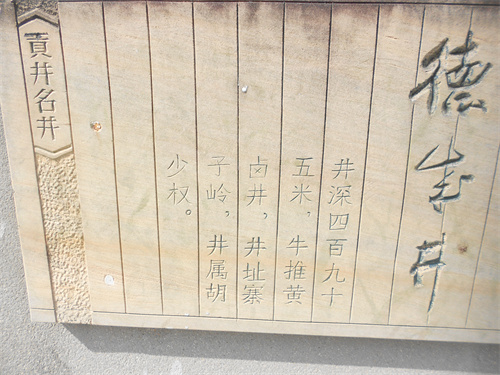 德井
井深四百九十
五米，牛推黄
卤井，井址寨
子岭，井属胡
少权。
貢井名井